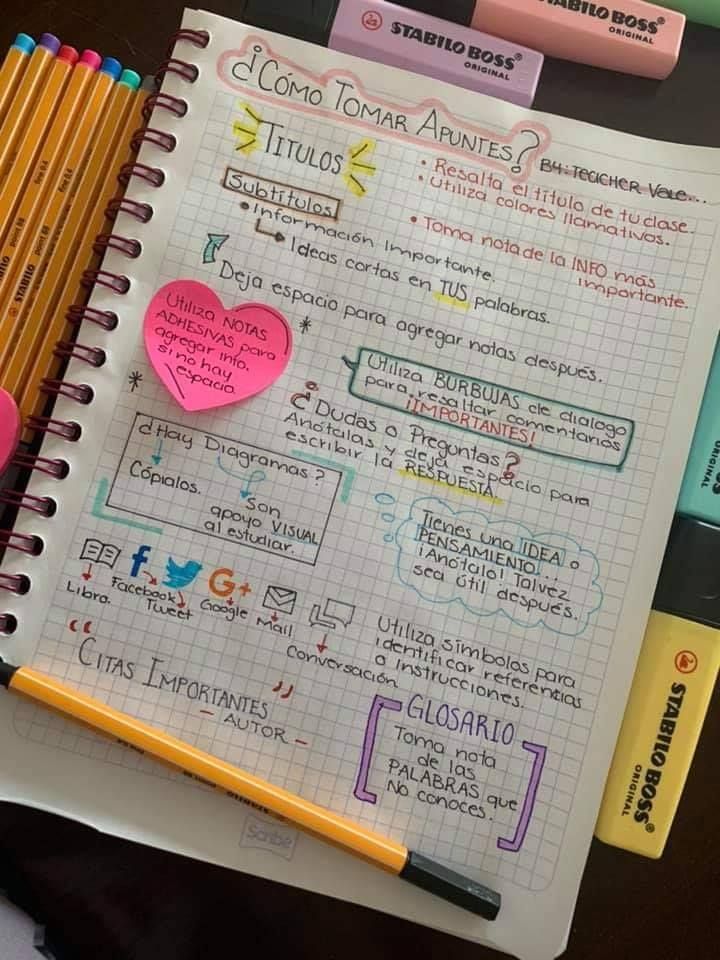 ¿Cómo Tomar Apuntes?
By: Teacher Vale...
Títulos
• Resalta el título de tu clase.
• Utiliza colores llamativos.
Subtítulos
• Información importante.
Ideas cortas en TUS palabras.
• Toma nota de la INFO más
importante.
Deja espacio para agregar notas después.
Utiliza NOTAS
ADHESIVAS para
agregar info.
si no hay
espacio
*
*
Utiliza BURBUJAS de dialogo
para resaltar comentarios
¡IMPORTANTES!
¿Dudas o Preguntas?
Anótalas y deja espacio para
escribir la RESPUESTA.
¿Hay Diagramas?
Cópialos.
Son
apoyo VISUAL
al estudiar.
Tienes una IDEA o
PENSAMIENTO...
¡Anótalo! Talvez
sea útil después.
f
G+
Libro.
Facebook
Tweet
Google
Mail
Conversación
Utiliza símbolos para
identificar referencias
o instrucciones.
“ Citas Importantes ”
- AUTOR -
GLOSARIO
Toma nota
de las
PALABRAS que
No conoces.
Scribe
STABILO BOSS®
ORIGINAL
STABILO BOSS®
ORIGINAL
STABILO BOSS®
ORIGINAL